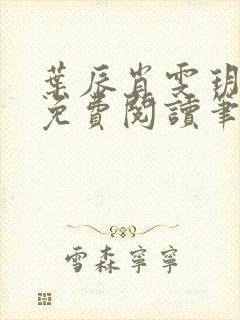 葉辰肖雯玥
免費閱讀筆
雪森寧寧